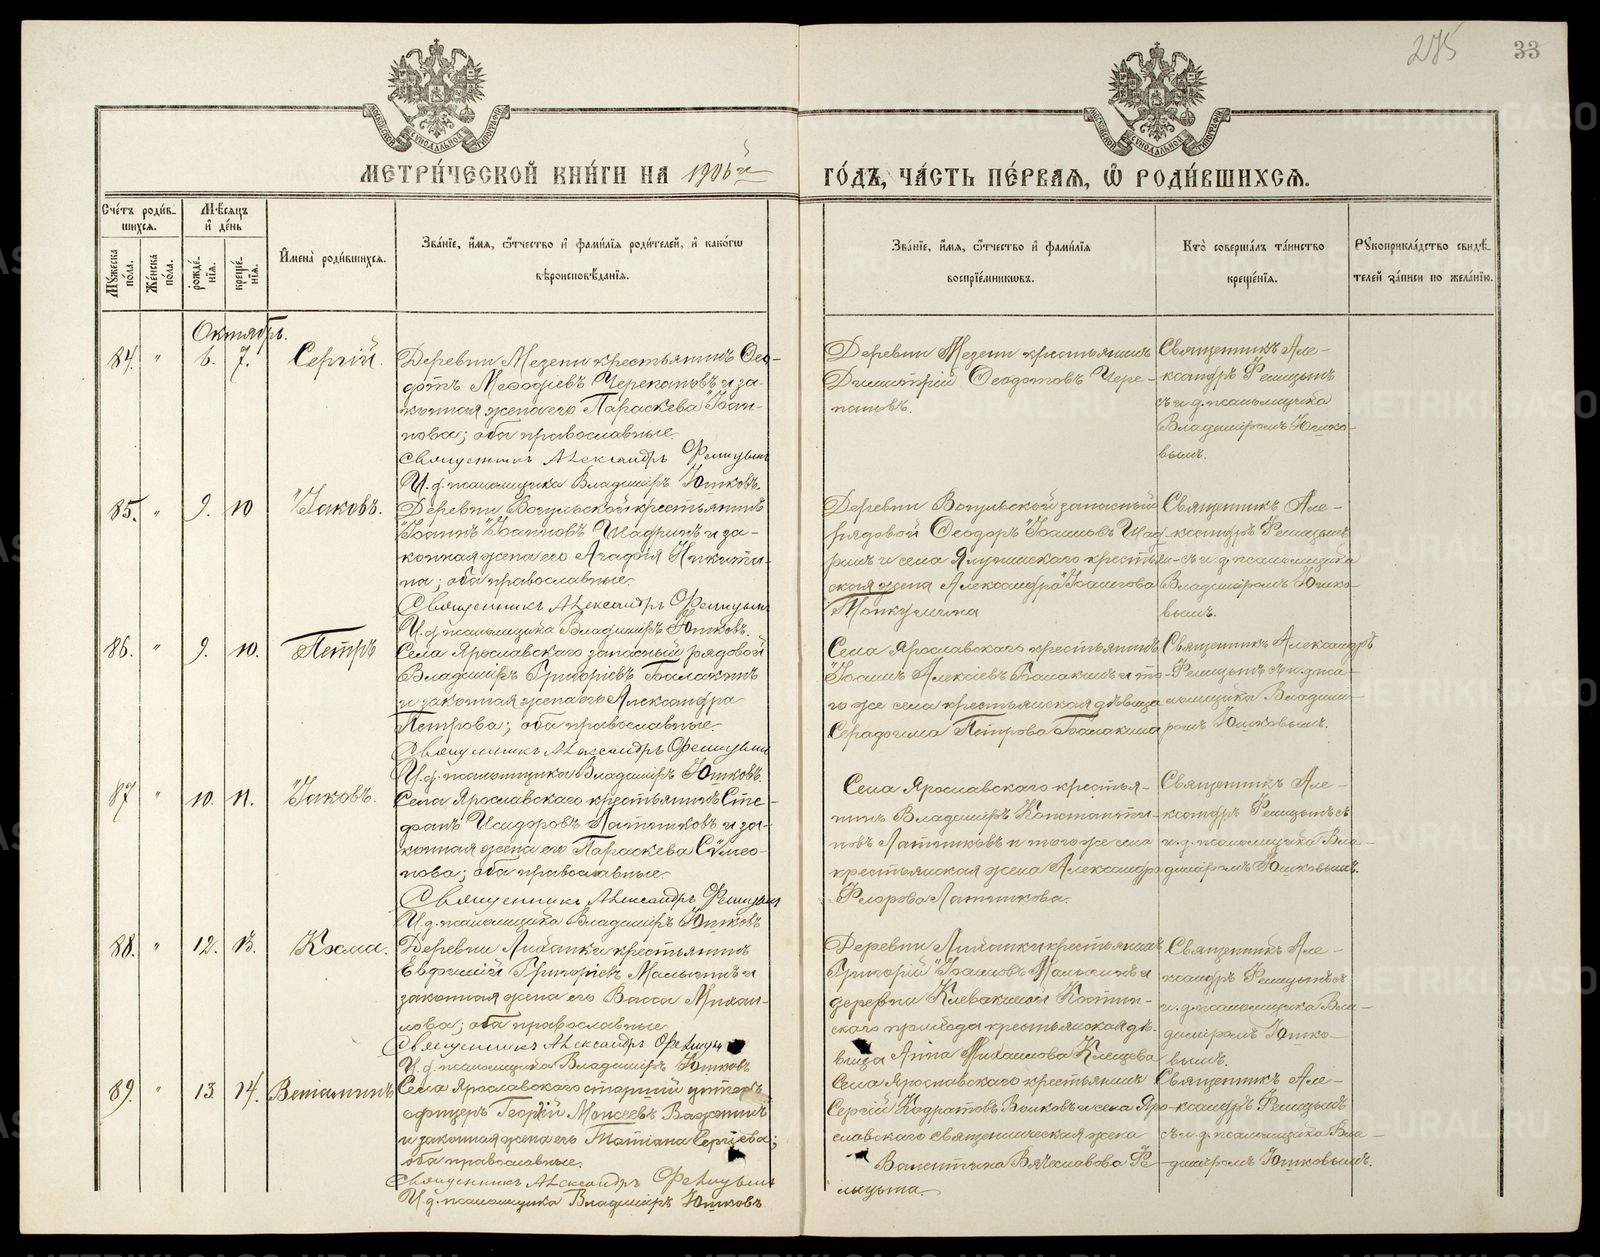 285 33
МЕТРИ́ЧЕСКОЙ КНИ́ГИ НА 1906й ГО́ДЪ, ЧА́СТЬ ПЕ́РВАЯ, Ѽ РОДИ́ВШИХСЯ.
Сче́тъ роди́в-
шихся.
Мꙋ́жеска по́ла.
Же́нска по́ла.
Мѣ́сяцъ и҆ де́нь
рожде́-
нїя.
креще́-
нїя.
И҆мена̀ роди́вшихся.
Зва́нїе, и҆́мя, ѻ҆́тчество и҆ фами́лїя роди́телей, и҆ како́гѡ
вѣроисповѣ́данїя.
Зва́нїе, и҆́мя, ѻ҆́тчество и҆ фами́лїя
воспрїе́мниковъ.
Кто̀ соверша́лъ та́инство
креще́нїя.
Рꙋкоприкла́дство свидѣ́-
телей за́писи по жела́нїю.
Октябрь.
84. " 6. 7. Сергій.
Деревни Мезени крестьянинъ Ѳео-
дотъ Меѳодіевъ Черепановъ и за-
конная жена его Параскева Іоан-
нова; оба православные.
Священникъ Александръ Фелицынъ
И. д. псаломщика Владиміръ Юшковъ.
Деревни Мезени крестьянинъ
Димитрій Ѳеодотовъ Чере-
пановъ.
Священникъ Але-
ксандръ Фелицынъ
съ и. д. псаломщика
Владиміромъ Юшко-
вымъ.
85. " 9. 10 Іаковъ.
Деревни Вогульской крестьянинъ
Іоаннъ Іоанновъ Шадринъ и за-
конная жена его Агафія Никити-
на; оба православные.
Священникъ Александръ Фелицынъ
И. д. псаломщика Владиміръ Юшковъ.
Деревни Вогульской запасный
рядовой Ѳеодоръ Іоанновъ Шад-
ринъ и села крестьян-
ская жена Александра Іоаннова
Священникъ Але-
ксандръ Фелицынъ
съ и. д. псаломщика
Владиміромъ Юшко-
вымъ.
86. " 9. 10. Петръ
Села Ярославскаго запасный рядовой
Владиміръ Григоріевъ Балакинъ
и законная жена его Александра
Петрова; оба православные.
Священникъ Александръ Фелицынъ
И. д. псаломщика Владиміръ Юшковъ.
Села Ярославскаго крестьянинъ
Іоаннъ Алексіевъ Балакинъ и то-
го же села крестьянская дѣвица
Петрова Балакина
Священникъ Александръ
Фелицынъ съ и. д. пса-
ломщика Владими-
ромъ Юшковымъ.
87 " 10. 11. Іаковъ.
Села Ярославскаго крестьянинъ Сте-
фанъ Исидоровъ Латниковъ и за-
конная жена его Параскева Сѵмео-
нова; оба православные.
Священникъ Александръ Фелицынъ
И. д. псаломщика Владиміръ Юшковъ
Села Ярославскаго крестья-
нинъ Владиміръ Константи-
новъ Латниковъ и того же села
крестьянская жена Александра
Флорова Латникова.
Священникъ Але-
ксандръ Фелицынъ съ
и. д. псаломщика Вла-
диміромъ Юшковымъ.
88. " 12. 13. Козма.
Деревни крестьянинъ
Евфимій Григоріевъ Мальгинъ и
законная жена его Васса Михаи-
лова; оба православные
Священникъ Александръ Фелицынъ
И. д. псаломщика Владиміръ Юшковъ
Деревни крестьянинъ
Григорій Іоанновъ Мальгинъ и
деревни Клевакиной
скаго прихода крестьянская дѣ-
вица Анна Михаилова Клещева
Священникъ Але-
ксандръ Фелицынъ съ
и. д. псаломщика Вла-
диміромъ Юшко-
вымъ.
89. " 13. 14. Веніаминъ
Села Ярославскаго старшій унтеръ-
офицеръ Георгій Моисеевъ Важенинъ
и законная жена его Татіана Сергіева;
оба православные.
Священникъ Александръ Фелицынъ
И. д. псаломщика Владиміръ Юшковъ
Села Ярославскаго крестьянинъ
Сергій Кодратовъ Волковъ и села Яро-
славскаго священническая жена
Валентина Вячеславова Фе-
лицына.
Священникъ Але-
ксандръ Фелицынъ
съ и. д. псаломщика Вла-
диміромъ Юшковымъ.